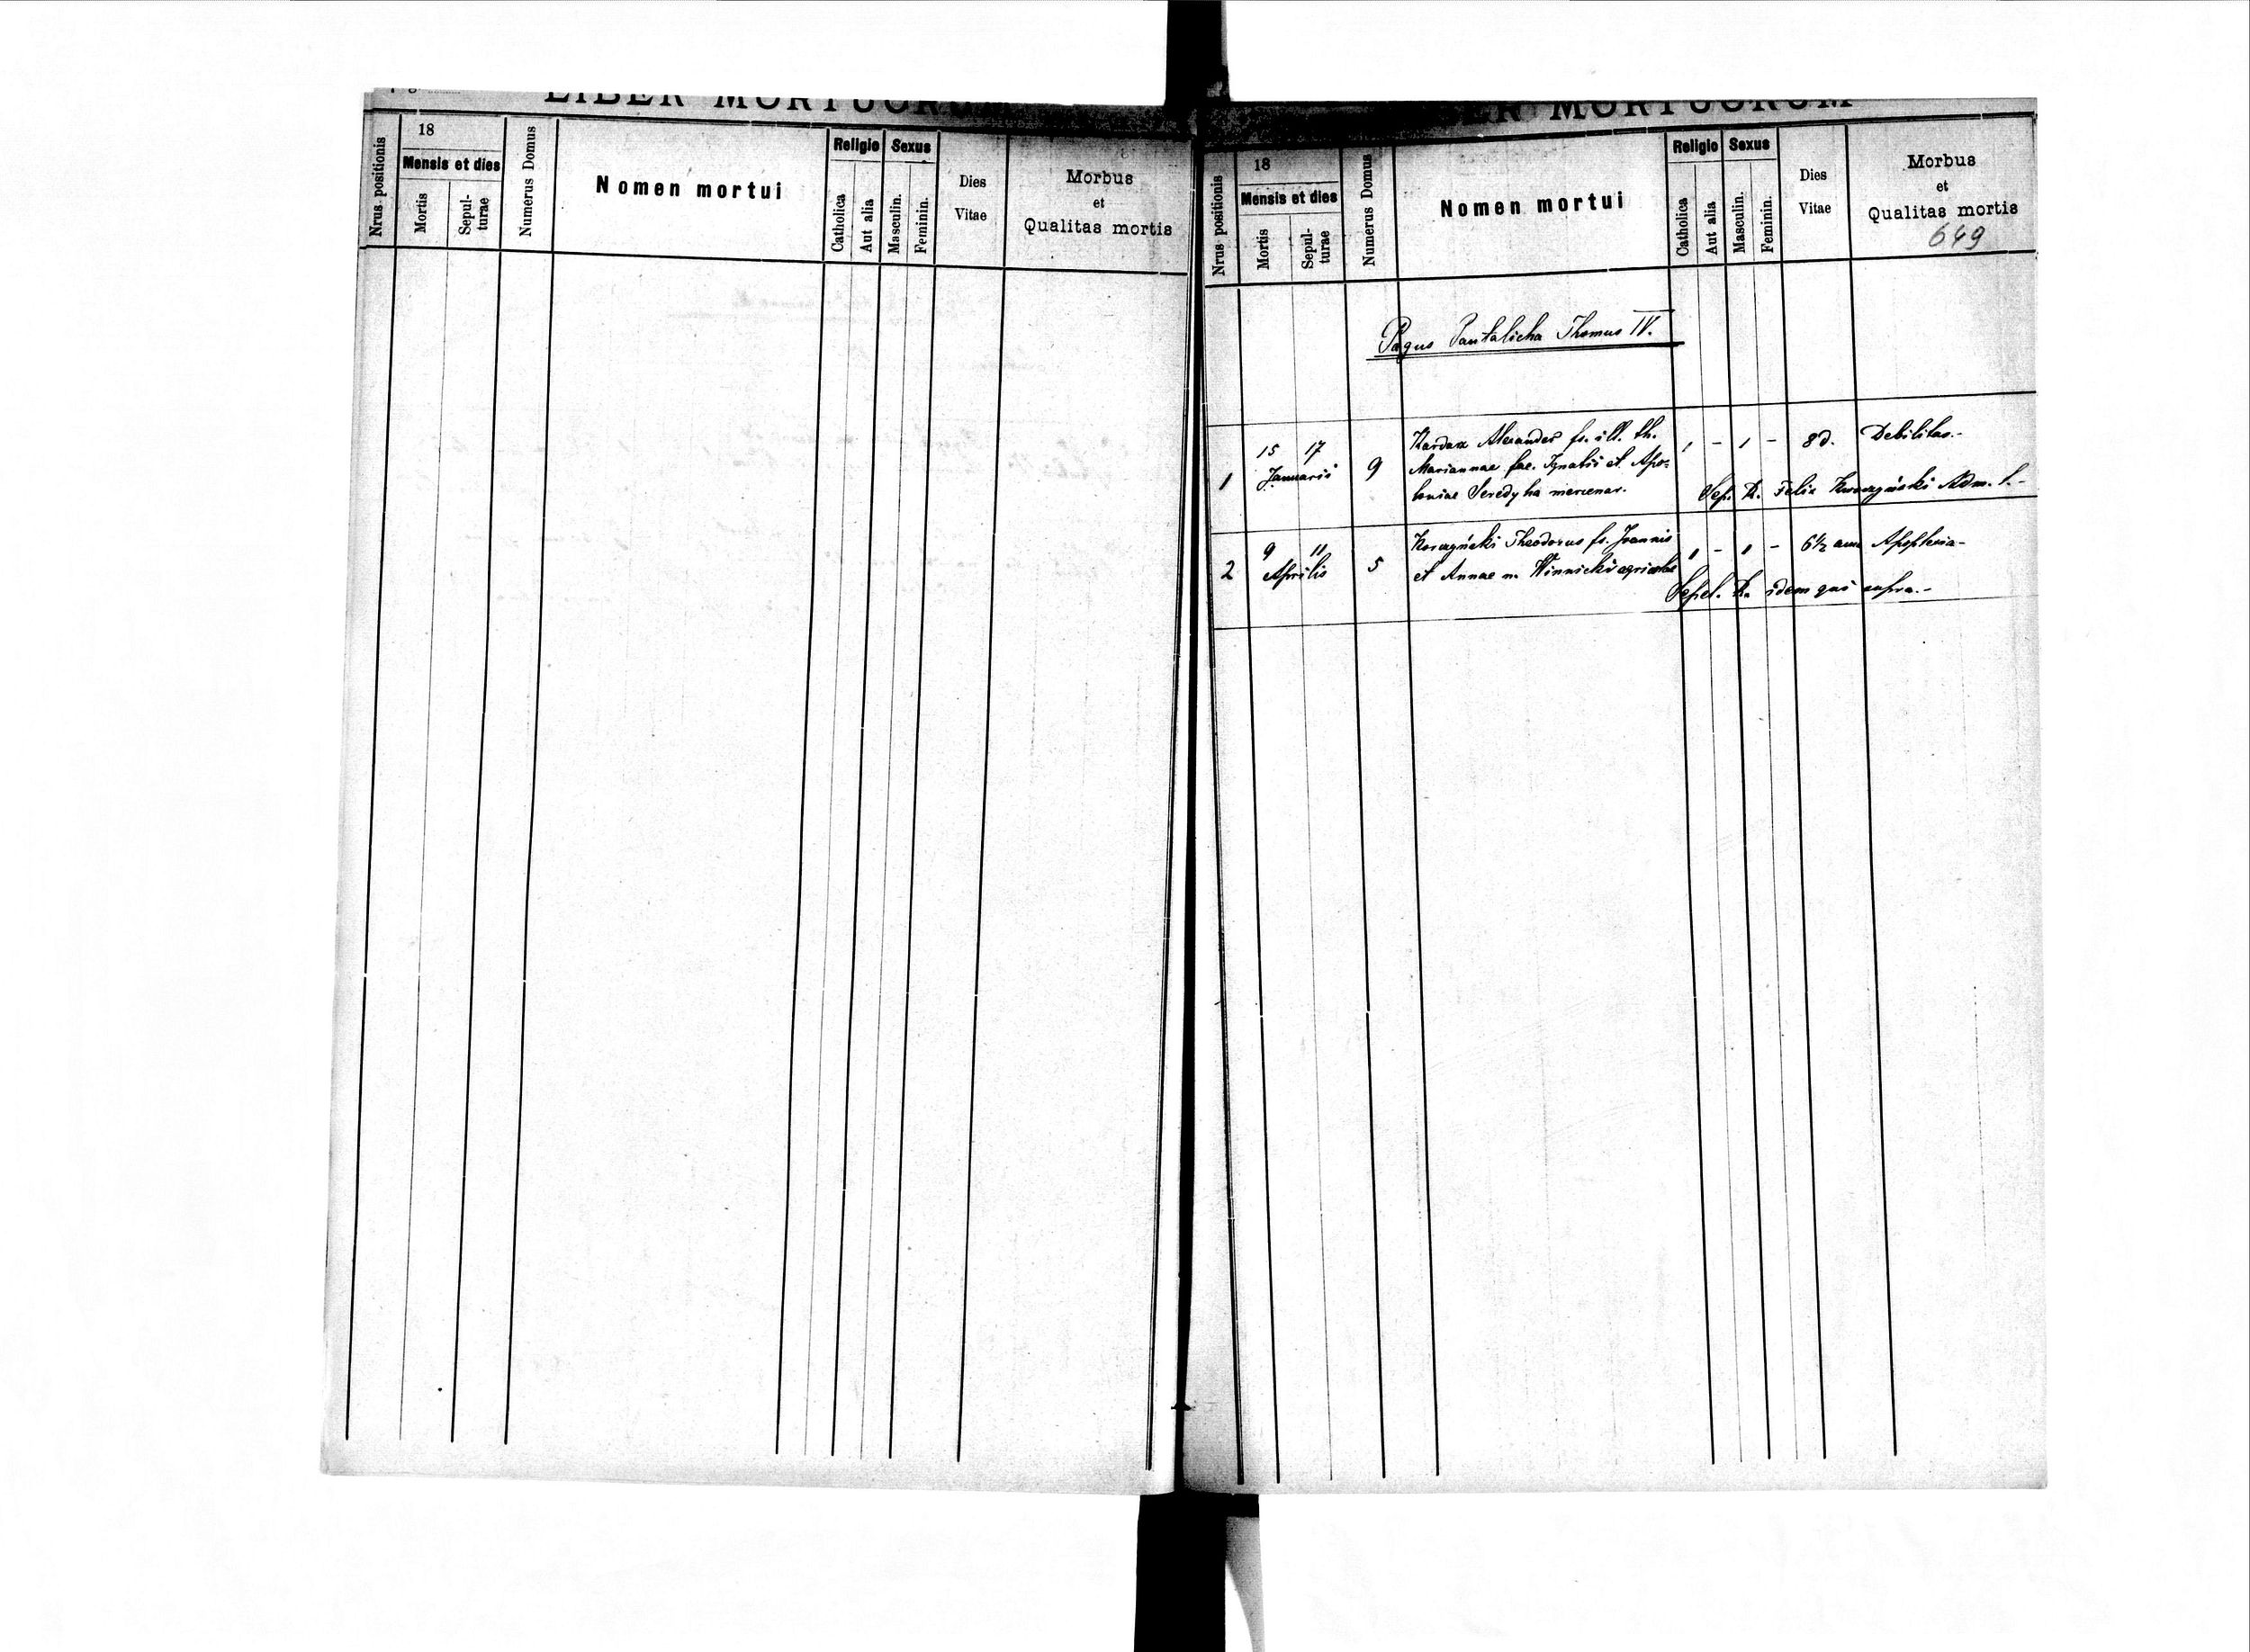 LIBER MORTUORUM
Nrus positionis
18
Mensis et dies
Mortis
Sepul-
turae
Numerus Domus
Nomen mortui
Religio
Catholica
Aut alia
Sexus
Masculin.
Feminin.
Dies
Vitae
Morbus
et
Qualitas mortis
LIBER MORTUORUM
Nrus positionis
18
Mensis et dies
Mortis
Sepul-
turae
Numerus Domus
Nomen mortui
Religio
Catholica
Aut alia
Sexus
Masculin.
Feminin.
Dies
Vitae
Morbus
et
Qualitas mortis
649
Pagus Pantalicha Thomus IV.
1
15 17
Januarii
9
Alexander fs. ill. th.
Mariannae fae. Ignatii et Apo-
loniae Seredyha mercenar.
1 - 1 -
8 d.
Debilitas.-
Sep. R. Felix Adm. l.-
2
9 11
Aprilis
5
Korczyński Theodorus fs. Joannis
et Annae n. Winnicki agricolae
1 - 1 -
6½ ann
Apoplexia-
Sepel. R. idem qui supra.-